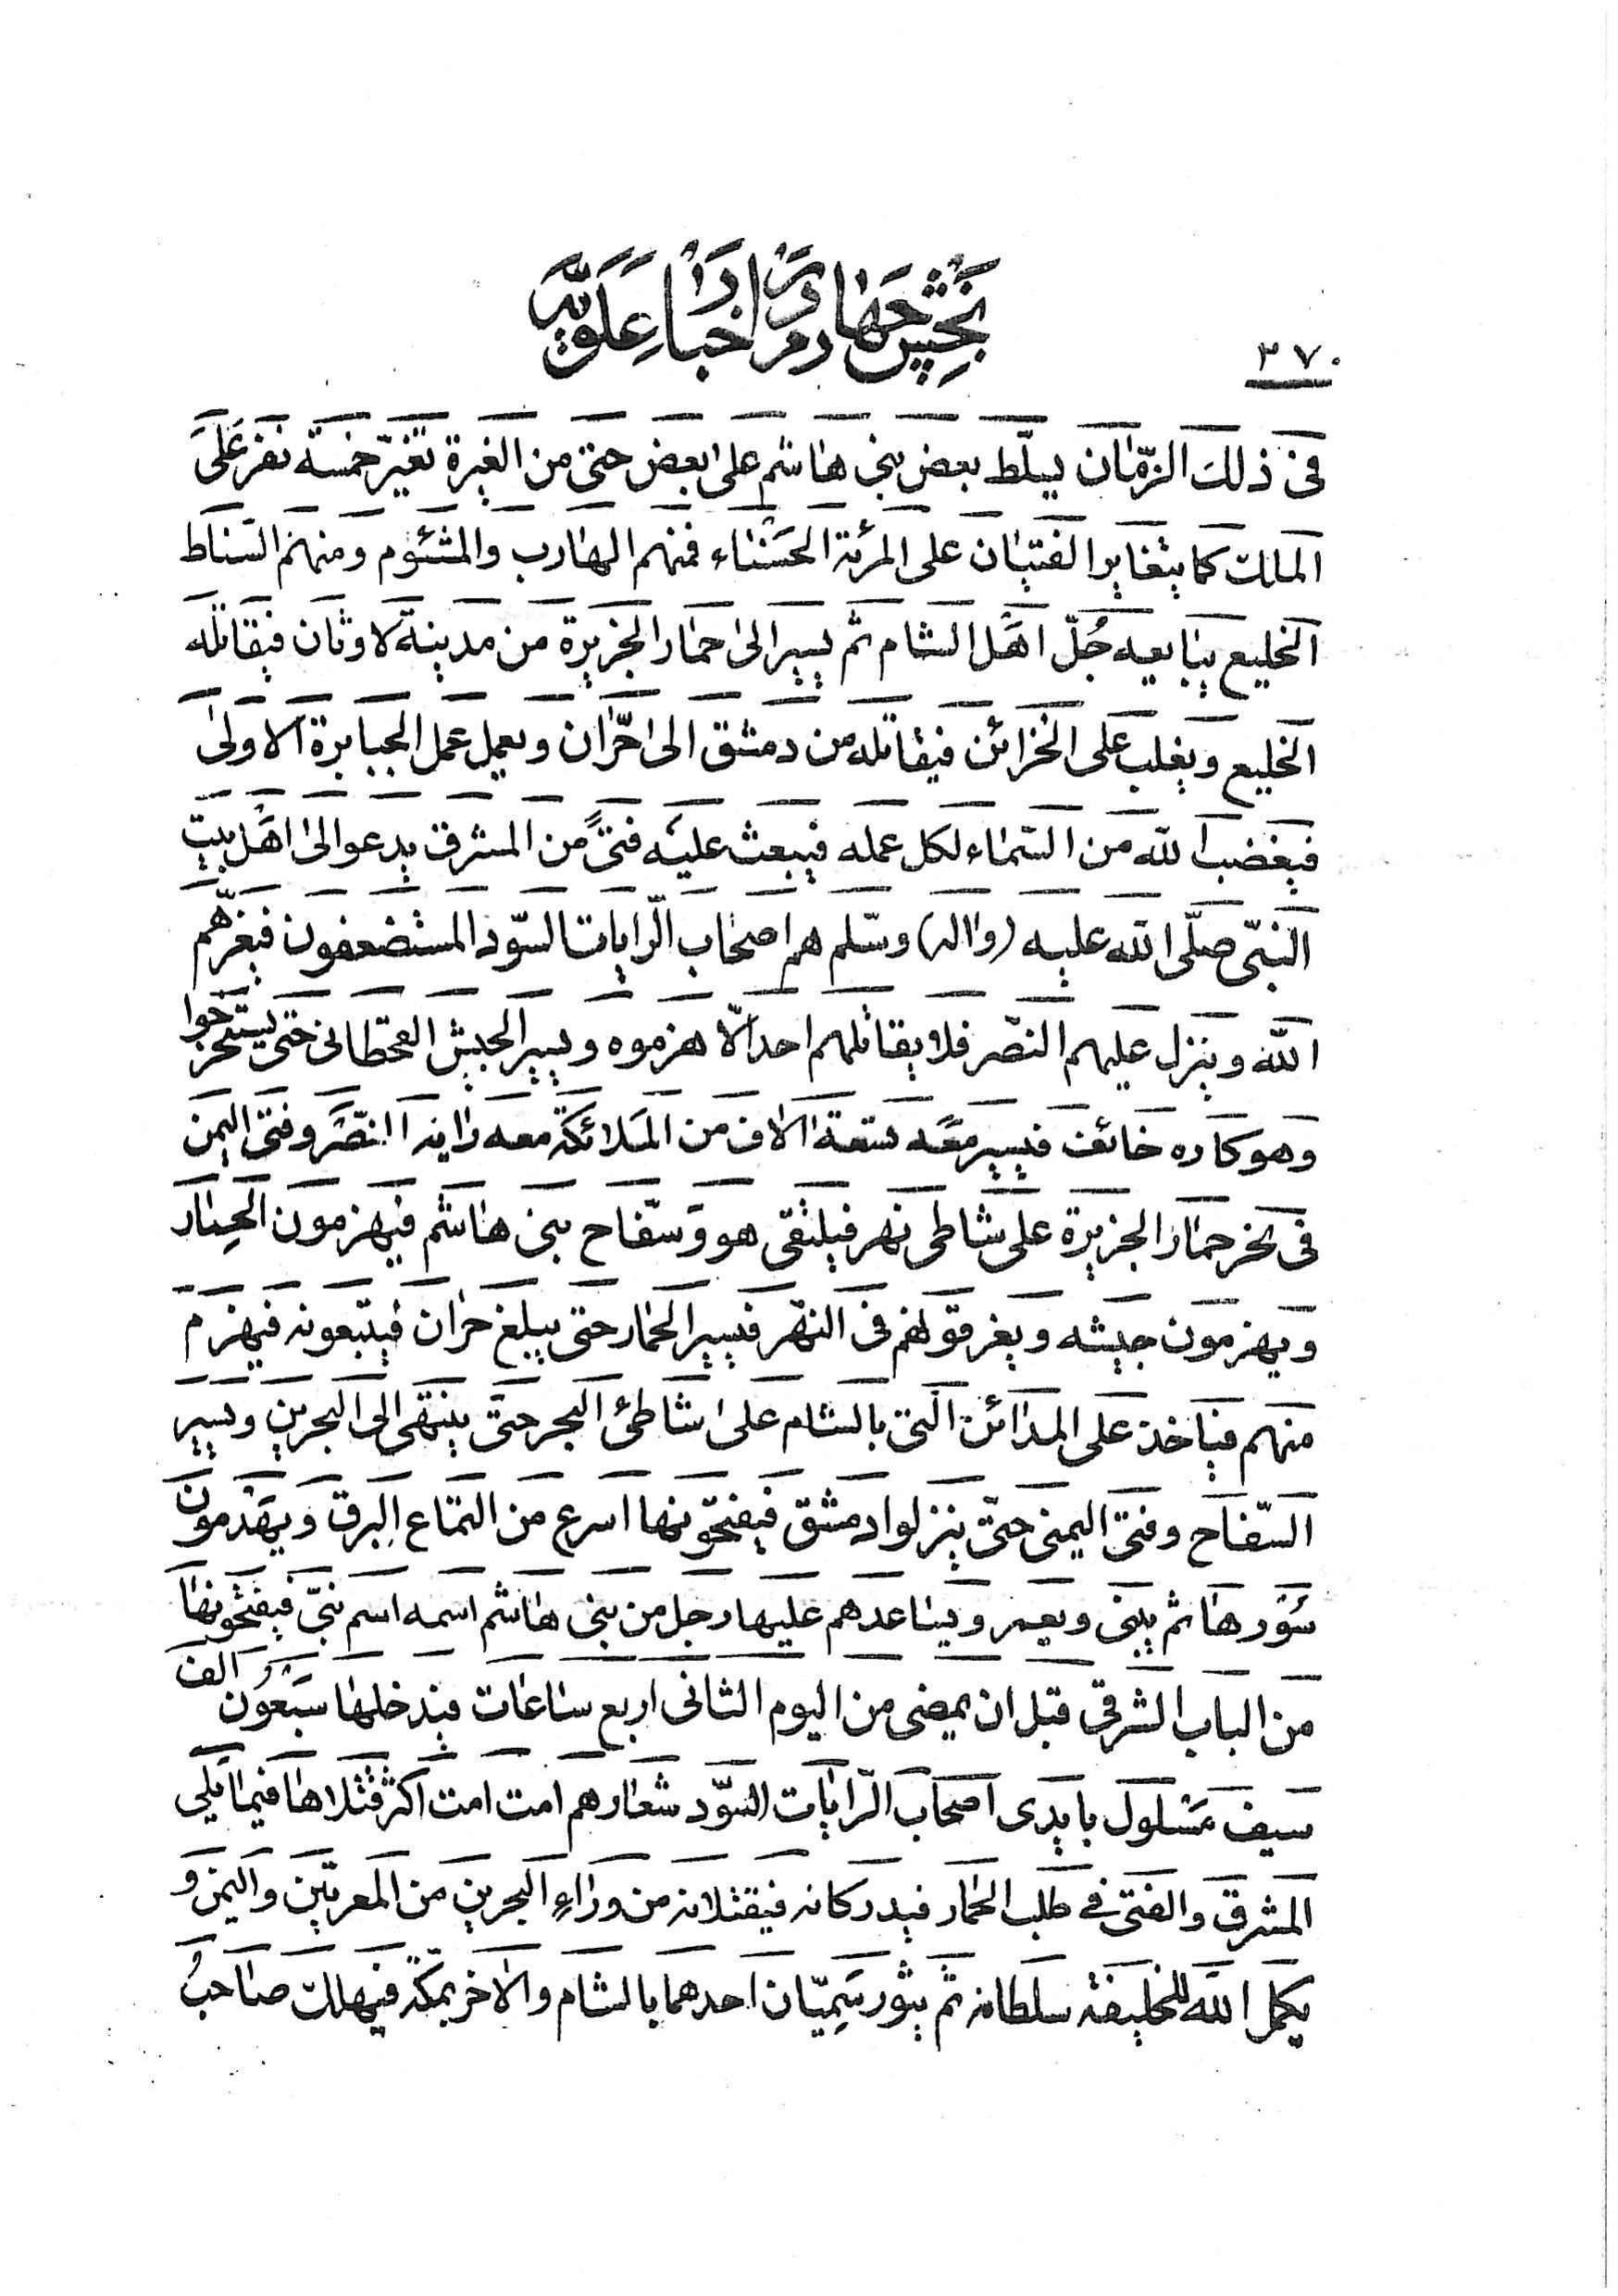 ۳۷۰
بخش چهارم در اخبار علویه
فی ذلك الزمان یسلّط بعض بنی هاشم علی بعض حتی من الغیرة تغیر خمسة نفر علی
الملك کما یتغایر الفتیان علی المرئة الحسناء فمنهم الهارب والمشئوم ومنهم السناط
الخلیع یبایعه جُلّ اهل الشام ثم یسیر الی حمار الجزیرة من مدینة لاوثان فیقاتله
الخلیع ویغلب علی الخزائن فیقاتله من دمشق الی احرّان ویعمل عمل الجبابرة الاولی
فیغضب الله من السماء لکل عمله فیبعث علیه فتیً من المشرق یدعوا الی اهل بیت
النبیّ صلّی الله علیه (واله) وسلّم هم اصحاب الرّایات السّود المستضعفون فیعزّهم
الله وینزل علیهم النصر فلا یقاتلهم احد الّا هزموه ویسیر الجیش القحطانی حتی یستخرجوا
وهو کاره خائف فیسیر معه تسعة الاف من الملائکة معه رایة النصر وفتی الیمن
فی نحر حمار الجزیرة علی شاطی نهر فیلتقی هو وسفّاح بنی هاشم فیهزمون الحمار
ویهزمون جیشه ویغرقونهم فی النهر فیسیر الحمار حتی یبلغ حران فیتبعونه فیهزم
منهم فیاخذ علی المدائن الّتی بالشام علی شاطئ البحر حتی ینتهی الی البحرین ویسیر
السّفاح وفتی الیمنی حتّی ینزلوا دمشق فیفتحونها اسرع من التماع البرق ویهدمون
سورها ثم یبنی ویعمر ویساعدهم علیها رجل من بنی هاشم اسمه اسم نبیّ فیفتحونها
من الباب الشرقی قبل ان یمضی من الیوم الثانی اربع ساعات فیدخلها سبعون الف
سیف مسلول بایدی اصحاب الرّایات السّود شعارهم امت امت اکثر قتلاها فیما یلی
المشرق والفتی فی طلب الحمار فیدرکانه فیقتلانه من وراء البحرین من المعرتین والیمن و
یکمل الله للخلیفة سلطانه ثم یثور سَمِیّان احدهما بالشام والاخر بمکّة فیهلك صاحب